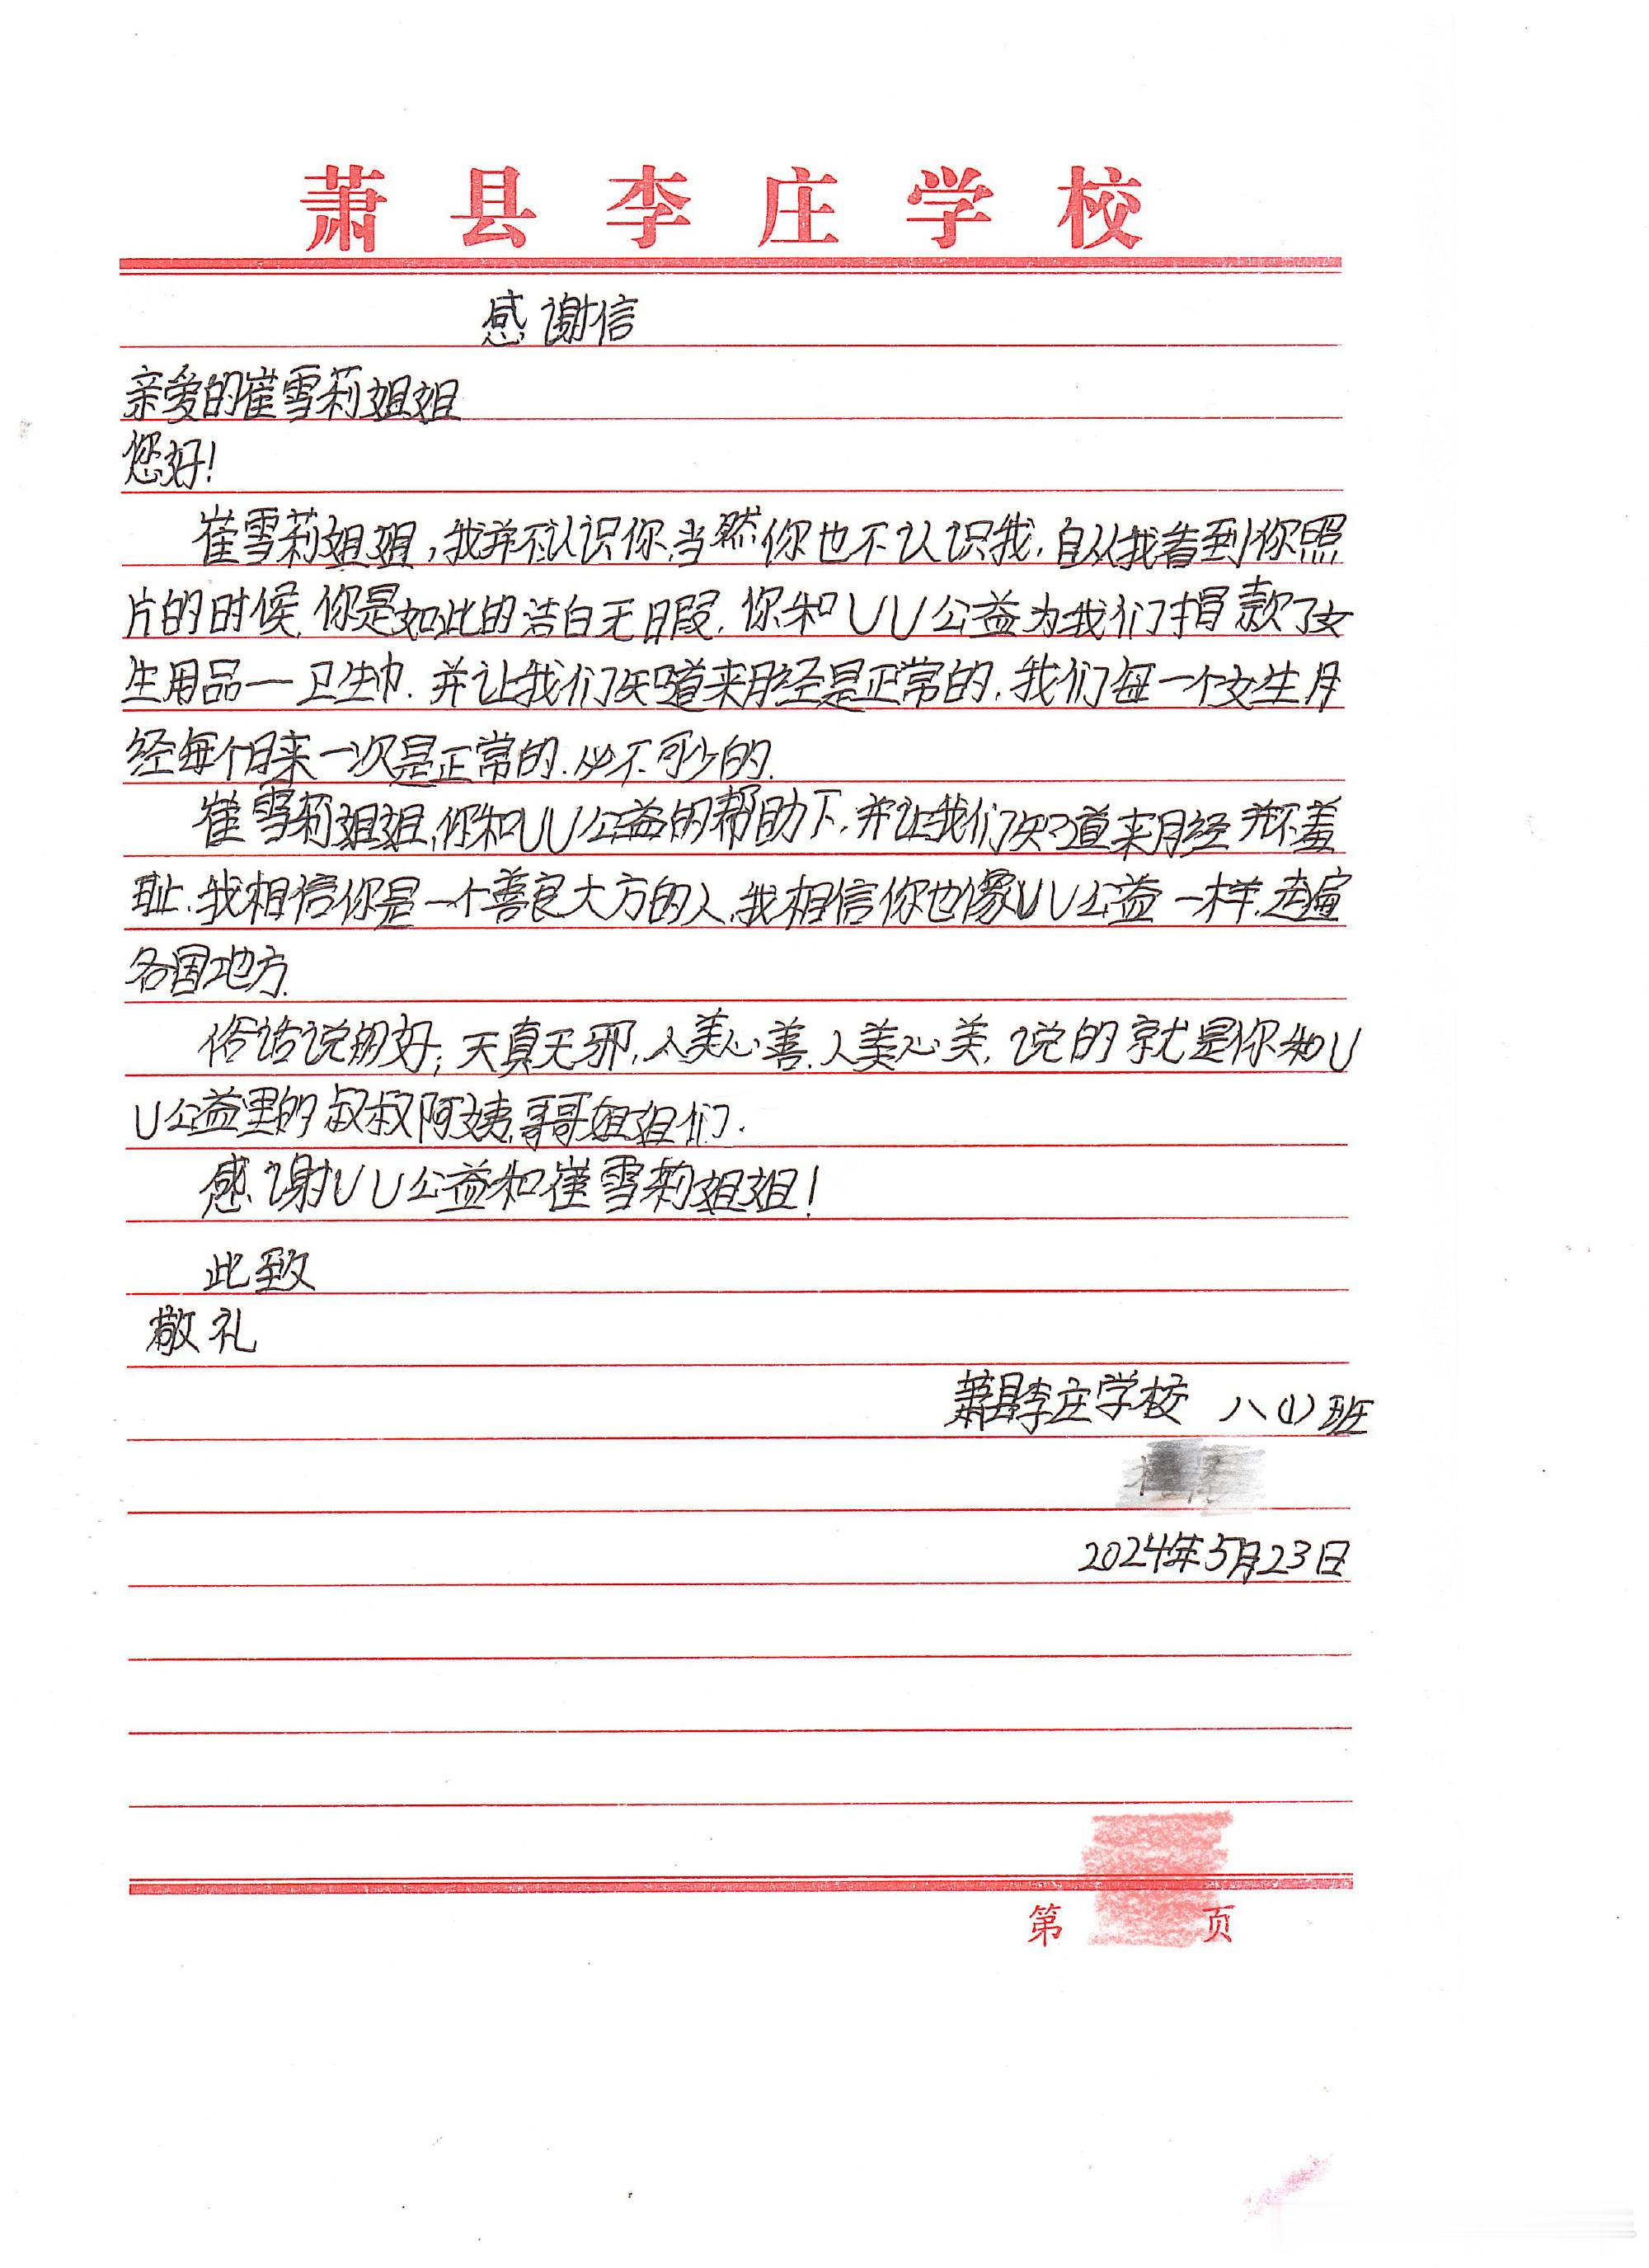 萧县李庄学校
感谢信
亲爱的崔雪莉姐姐
您好!
崔雪莉姐姐,我并不认识你,当然你也不认识我.自从我看到你照
片的时候,你是如此的洁白无暇.你和UU公益为我们捐款了女
生用品一卫生巾.并让我们知道来月经是正常的.我们每一个女生月
经每个月来一次是正常的.必不可少的.
崔雪莉姐姐,你和UU公益的帮助下,并让我们知道来月经并不羞
耻.我相信你是一个善良大方的人,我相信你也像UU公益一样.走遍
各国地方.
俗话说的好;天真无邪,人美心善.人美心美,说的就是你和U
U公益里的叔叔阿姨,哥哥姐姐们.
感谢UU公益和崔雪莉姐姐!
此致
敬礼
萧县李庄学校 八(1)班
2024年5月23日
第 页